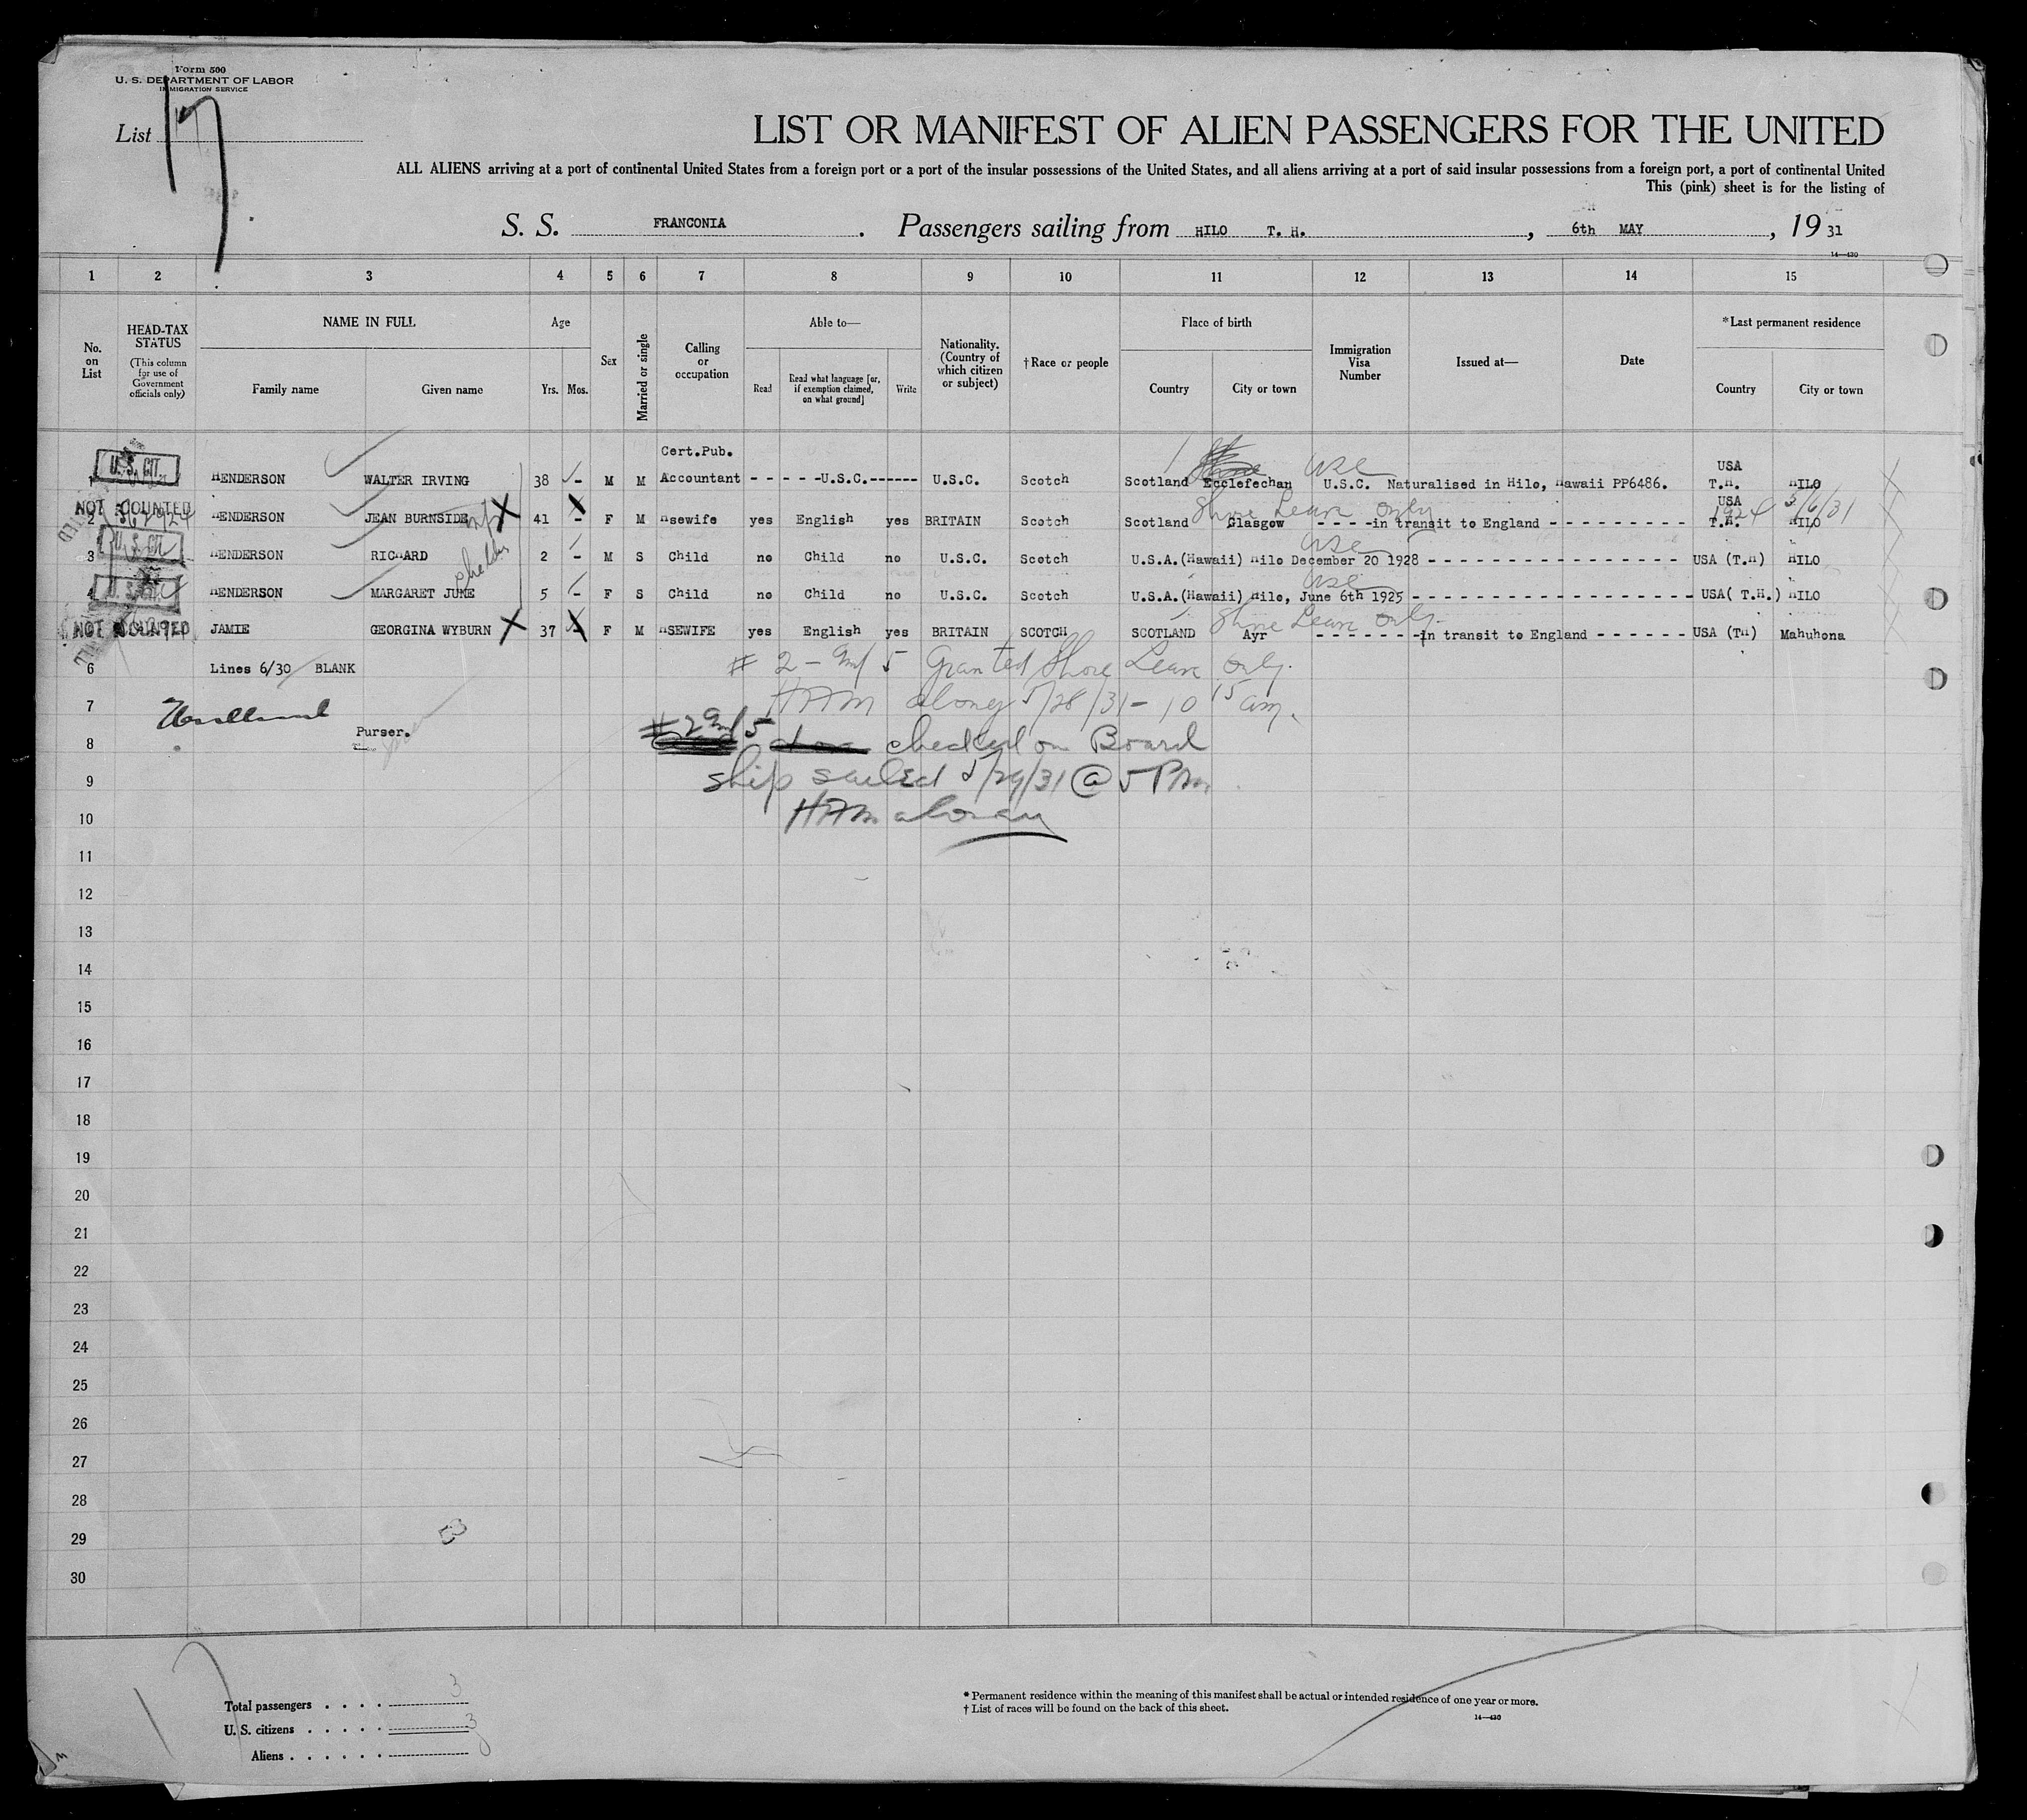 Form 500
U. S. DEPARTMENT OF LABOR
IMMIGRATION SERVICE
List 17
LIST OR MANIFEST OF ALIEN PASSENGERS FOR THE UNITED
ALL ALIENS arriving at a port of continental United States from a foreign port or a port of the insular possessions of the United States, and all aliens arriving at a port of said insular possessions from a foreign port, a port of continental United
This (pink) sheet is for the listing of
S. S. FRANCONIA. Passengers sailing from HILO T. H., 6th MAY, 19 31
14—430
1 2 3 4 5 6 7 8 9 10 11 12 13 14 15
No. on List
HEAD-TAX STATUS (This column for use of Government officials only)
NAME IN FULL
Family name Given name
Age
Yrs. Mos.
Sex
Married or single
Calling or occupation
Able to—
Read
Read what language [or, if exemption claimed, on what ground]
Write
Nationality. (Country of which citizen or subject)
†Race or people
Place of birth
Country City or town
Immigration Visa Number
Issued at—
Date
*Last permanent residence
Country City or town
U.S. CIT.
1 HENDERSON WALTER IRVING 38 - M M Cert.Pub. Accountant - - - - -U.S.C.------ U.S.C. Scotch Scotland Ecclefechan U.S.C. Naturalised in Hilo, Hawaii PP6486. USA T.H. HILO
USC
NOT COUNTED
2 HENDERSON JEAN BURNSIDE X 41 - F M Hsewife yes English yes BRITAIN Scotch Scotland Glasgow - - - -in transit to England - - - - - - - - - - USA T.H. HILO
Shore Leave only
1924 3/6/31
U.S. CIT.
3 HENDERSON RICHARD 2 - M S Child no Child no U.S.C. Scotch U.S.A.(Hawaii) Hilo December 20 1928 - - - - - - - - - - - - - - - - - - USA (T.H) HILO
USC
U.S. CIT.
4 HENDERSON MARGARET JUNE 5 - F S Child no Child no U.S.C. Scotch U.S.A.(Hawaii) Hilo, June 6th 1925- - - - - - - - - - - - - - - - - - - - USA( T.H.) HILO
USC
NOT COUNTED
JAMIE GEORGINA WYBURN X 37 - F M HSEWIFE yes English yes BRITAIN SCOTCH SCOTLAND Ayr - - - - - - -in transit to England - - - - - - USA (TH) Mahuhona
Shore Leave only.
6 Lines 6/30 BLANK
# 2 - and 5 Granted Shore Leave only.
7
5/28/31 - 10 15 am.
Purser.
8
#2 and 5 checked on Board
9
ship sailed 5/29/31 @ 5 PM
10
11
12
13
14
15
16
17
18
19
20
21
22
23
24
25
26
27
28
29
30
Total passengers . . . . 3
U. S. citizens . . . . . 3
Aliens . . . . . .
* Permanent residence within the meaning of this manifest shall be actual or intended residence of one year or more.
† List of races will be found on the back of this sheet.
14—430